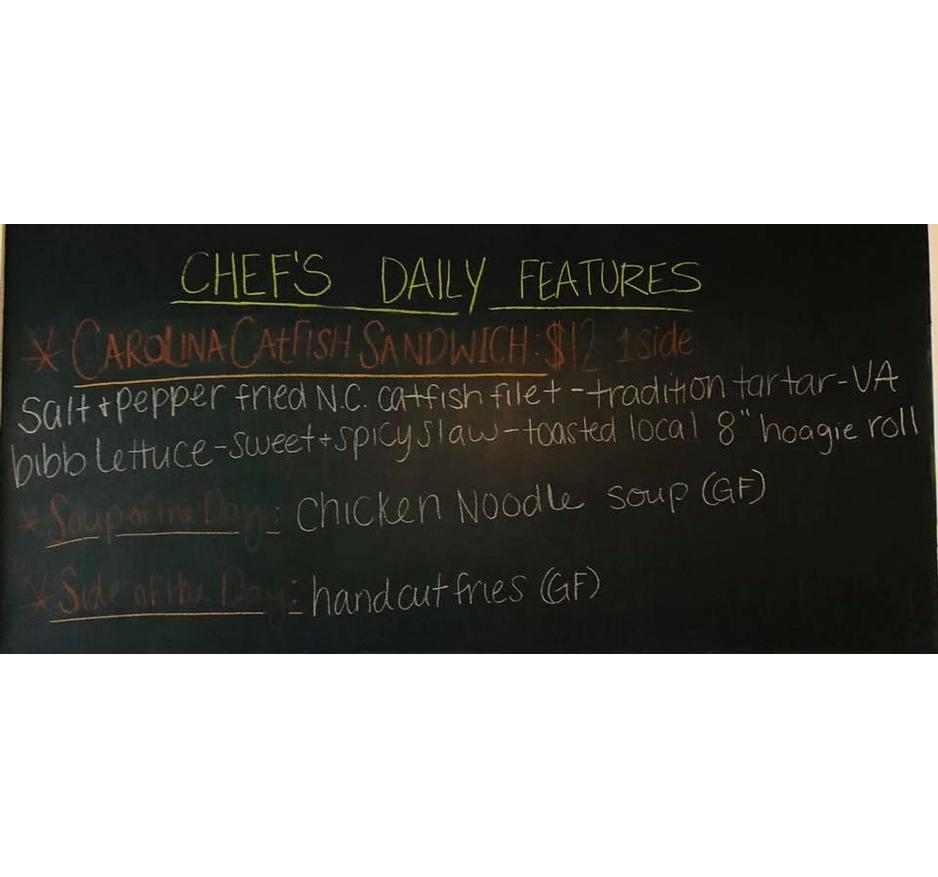 CHEF'S DAILY FEATURES
* CAROLINA CATFISH SANDWICH: $12 1 side
Salt + pepper fried N.C. catfish filet - tradition tartar - VA
bibb lettuce - sweet + spicy slaw - toasted local 8" hoagie roll
* Soup of the Day: Chicken Noodle soup (GF)
* Side of the Day: handcut fries (GF)